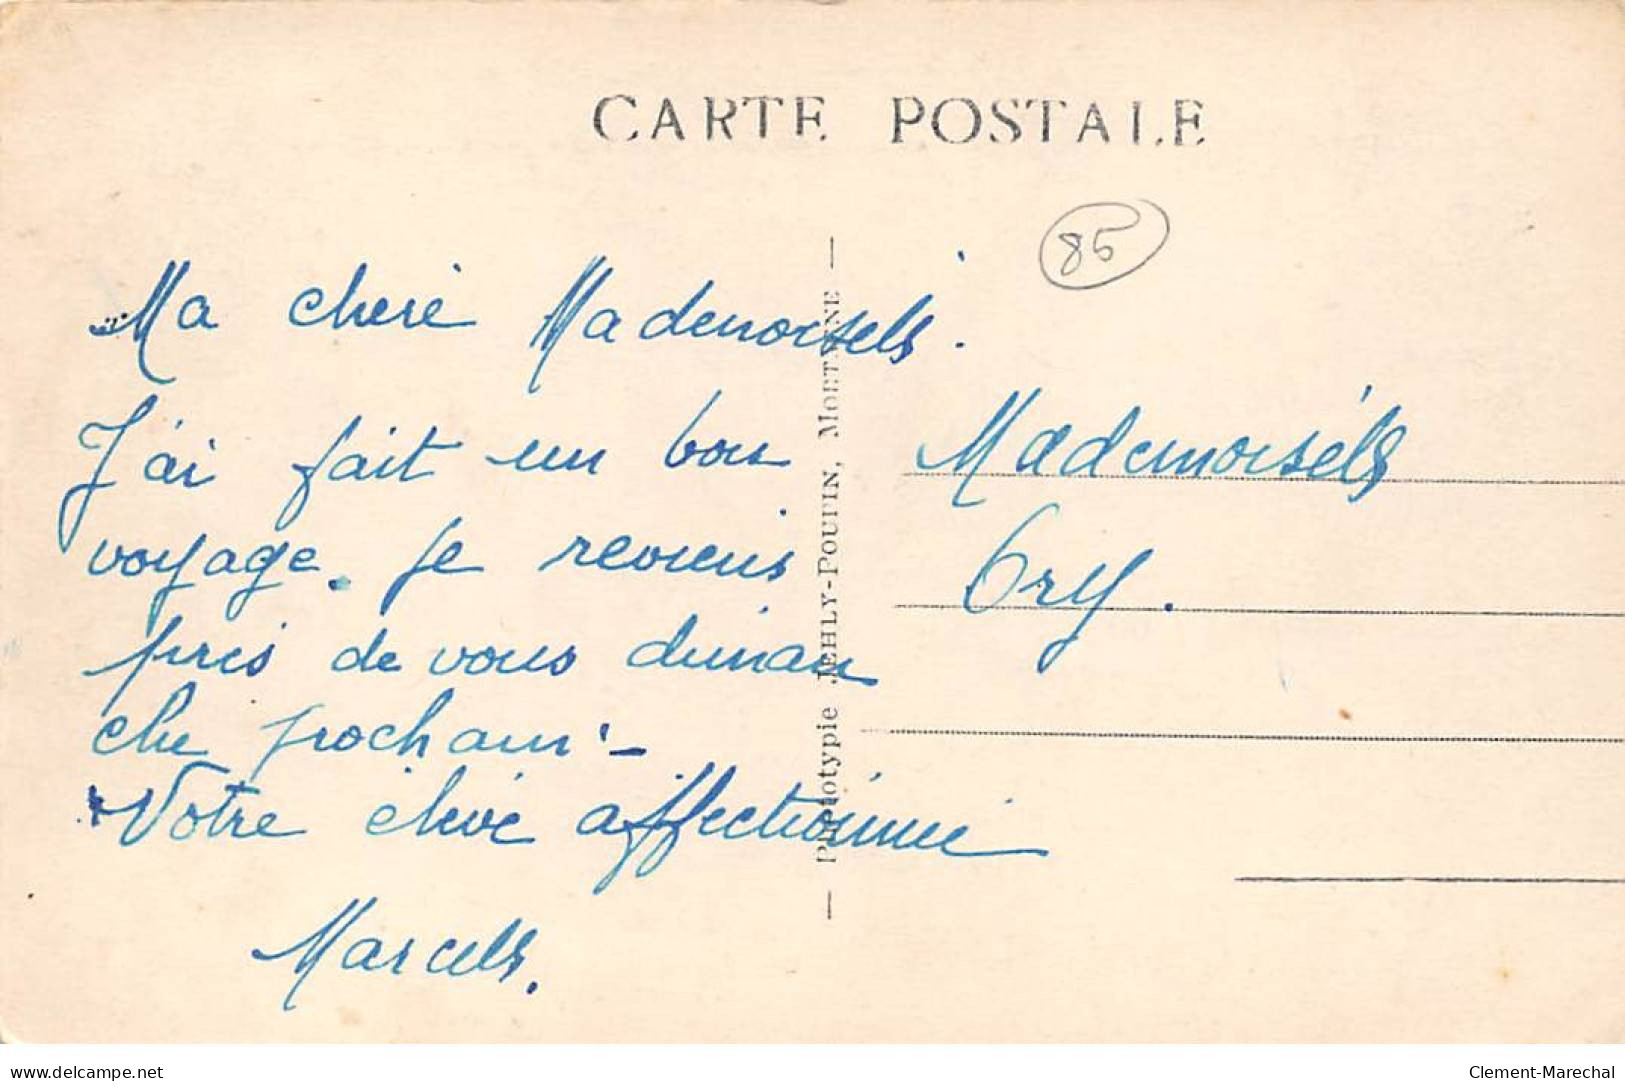 CARTE POSTALE
85
Ma cheré Mademoisels.
J'ai fait un bon
voyage. je reviens
près de vous diman
che prochain.-
Votre élève affectionnée
Marcels.
Phototypie JEHLY-POUPIN, MORTAGNE
Mademoiséls
Ory.
www.delcampe.net
Clement-Marechal